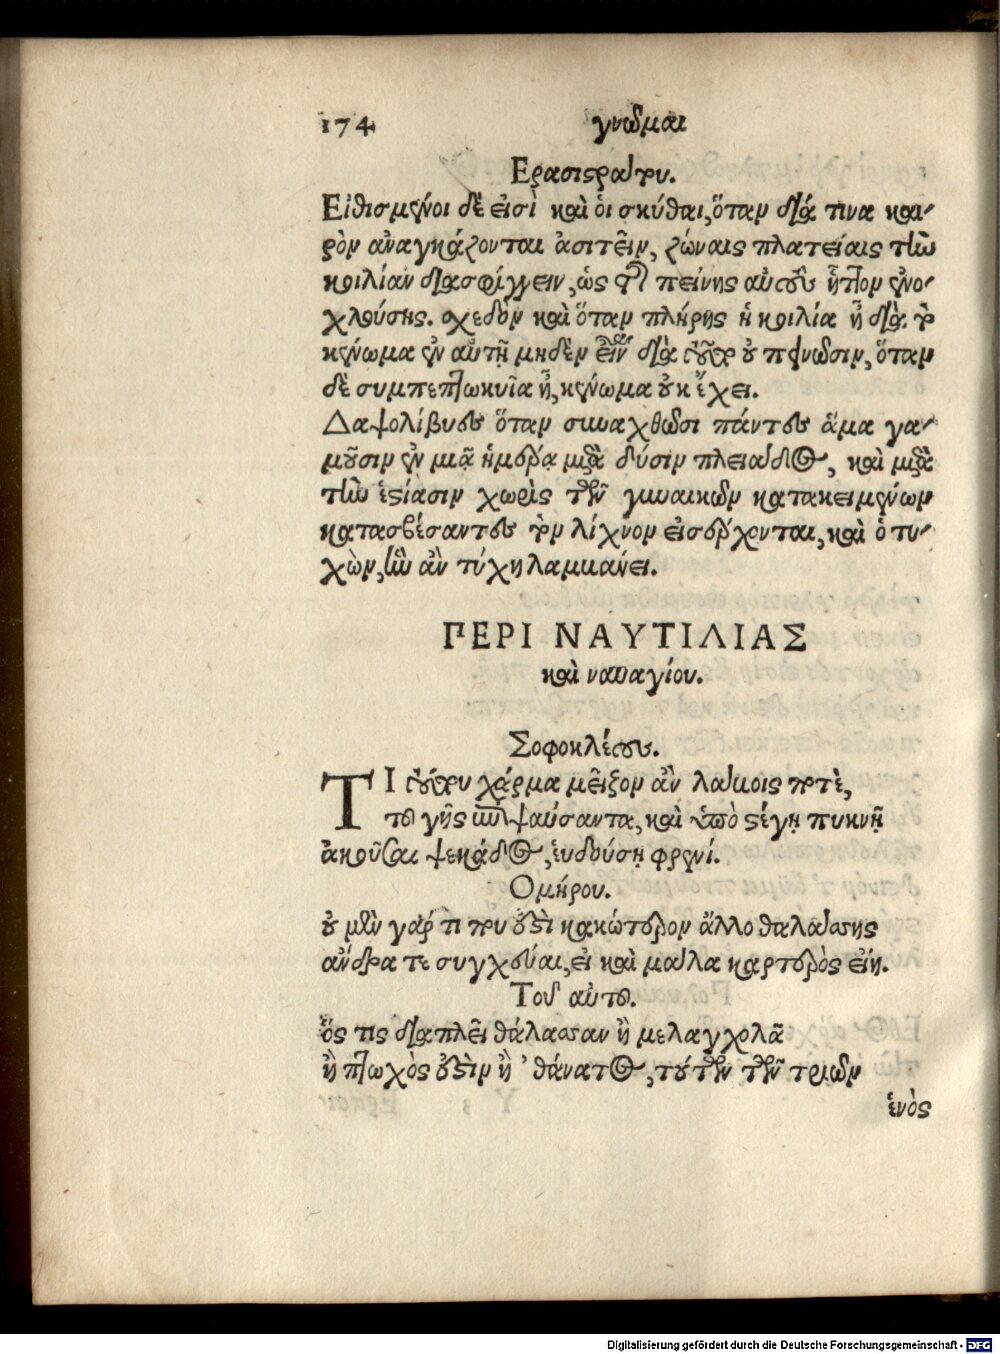 174 γνῶμαι
Ερασιστράτου.
Εἰθισμένοι δὲ εἰσὶ καὶ ὁι σκύθαι, ὅταν διά τινα και-
ρὸν ἀναγκάζονται ἀσιτεῖν, ζώναις πλατείαις τὴν
κοιλίαν διασφίγγειν, ὡς τῆς πείνης αὐτοὺς ἧττον ἐνο-
χλούσης. σχεδὸν καὶ ὅταν πλήρης ἡ κοιλία ᾖ διὰ τὸ
κένωμα ἐν αὐτῇ μηδὲν εἶναι διὰ τοῦτο οὐ πεινῶσιν, ὅταν
δὲ συμπεπτωκυῖα ᾖ, κένωμα οὐκ ἔχει.
Δαψολίβυες ὅταν συναχθῶσι πάντες ἅμα γα-
μοῦσιν ἐν μιᾷ ἡμέρᾳ μετὰ δύσιν πλειάδος, καὶ μετὰ
τὴν ἑστίασιν χωρὶς τῶν γυναικῶν κατακειμένων
κατασβέσαντες τὸν λίχνον εἰσέρχονται, καὶ ὁ τυ-
χὼν, ἣν ἂν τύχη λαμβάνει.
ΠΕΡΙ ΝΑΥΤΙΛΙΑΣ
καὶ ναυαγίου.
Σοφοκλέους.
ΤΙ τούτου χάρμα μεῖζον ἂν λάβοις ποτὲ,
τοῦ γῆς ἐπιψαύσαντα, καὶ ὑπὸ στέγῃ πυκνῇ
ἀκοῦσαι ψεκάδος, ἑυδούσῃ φρενί.
Ομήρου.
οὐ μὲν γάρ τὶ που ἐστὶ κακώτερον ἄλλο θαλάσσης
ἄνδρα τε συγχεύαι, εἰ καὶ μάλα καρτερὸς εἴη.
Τοῦ αὐτοῦ.
ὅς τις διαπλεῖ θάλασσαν ἢ μελαγχολᾶ
ἢ πτωχὸς ἐστὶν ἢ ᾽ θάνατος, τούτων τῶν τριῶν
ἑνὸς
Digitalisierung gefördert durch die Deutsche Forschungsgemeinschaft - DFG